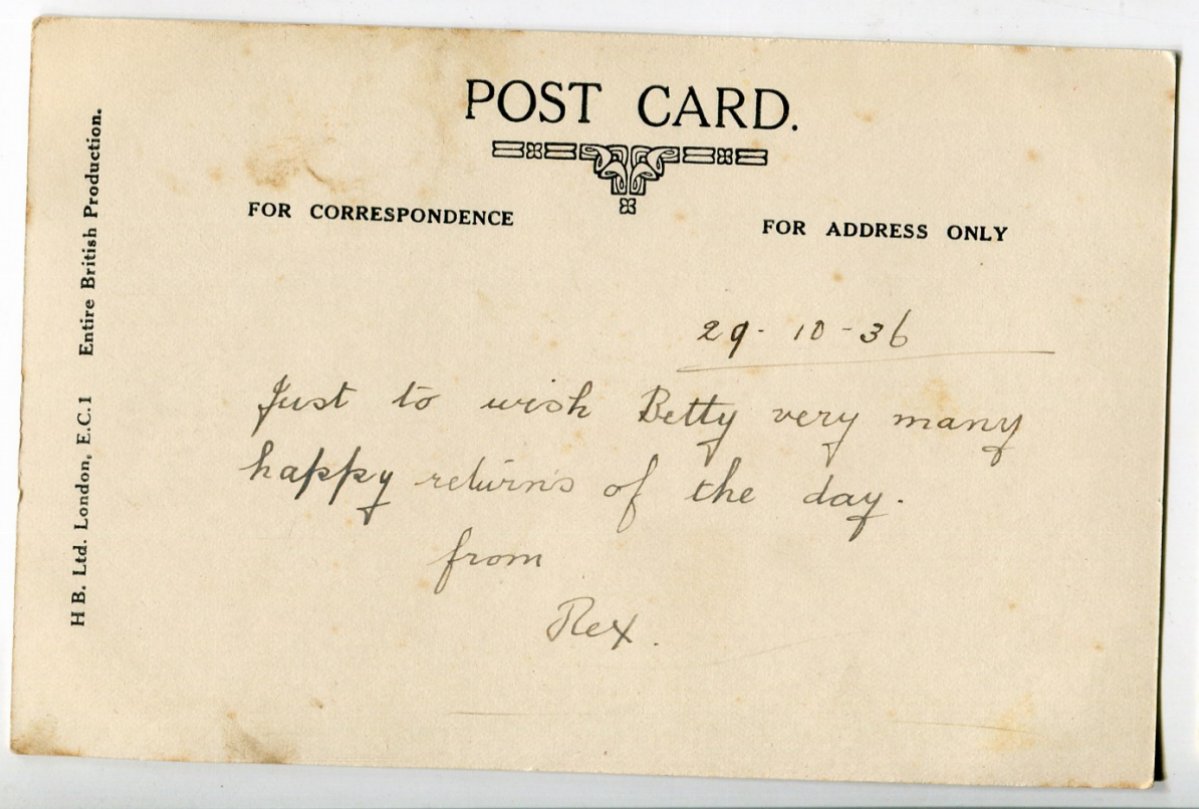 POST CARD.
FOR CORRESPONDENCE
FOR ADDRESS ONLY
H B. Ltd. London, E.C.1 Entire British Production.
29-10-36
Just to wish Betty very many
happy returns of the day.
from
Rex.